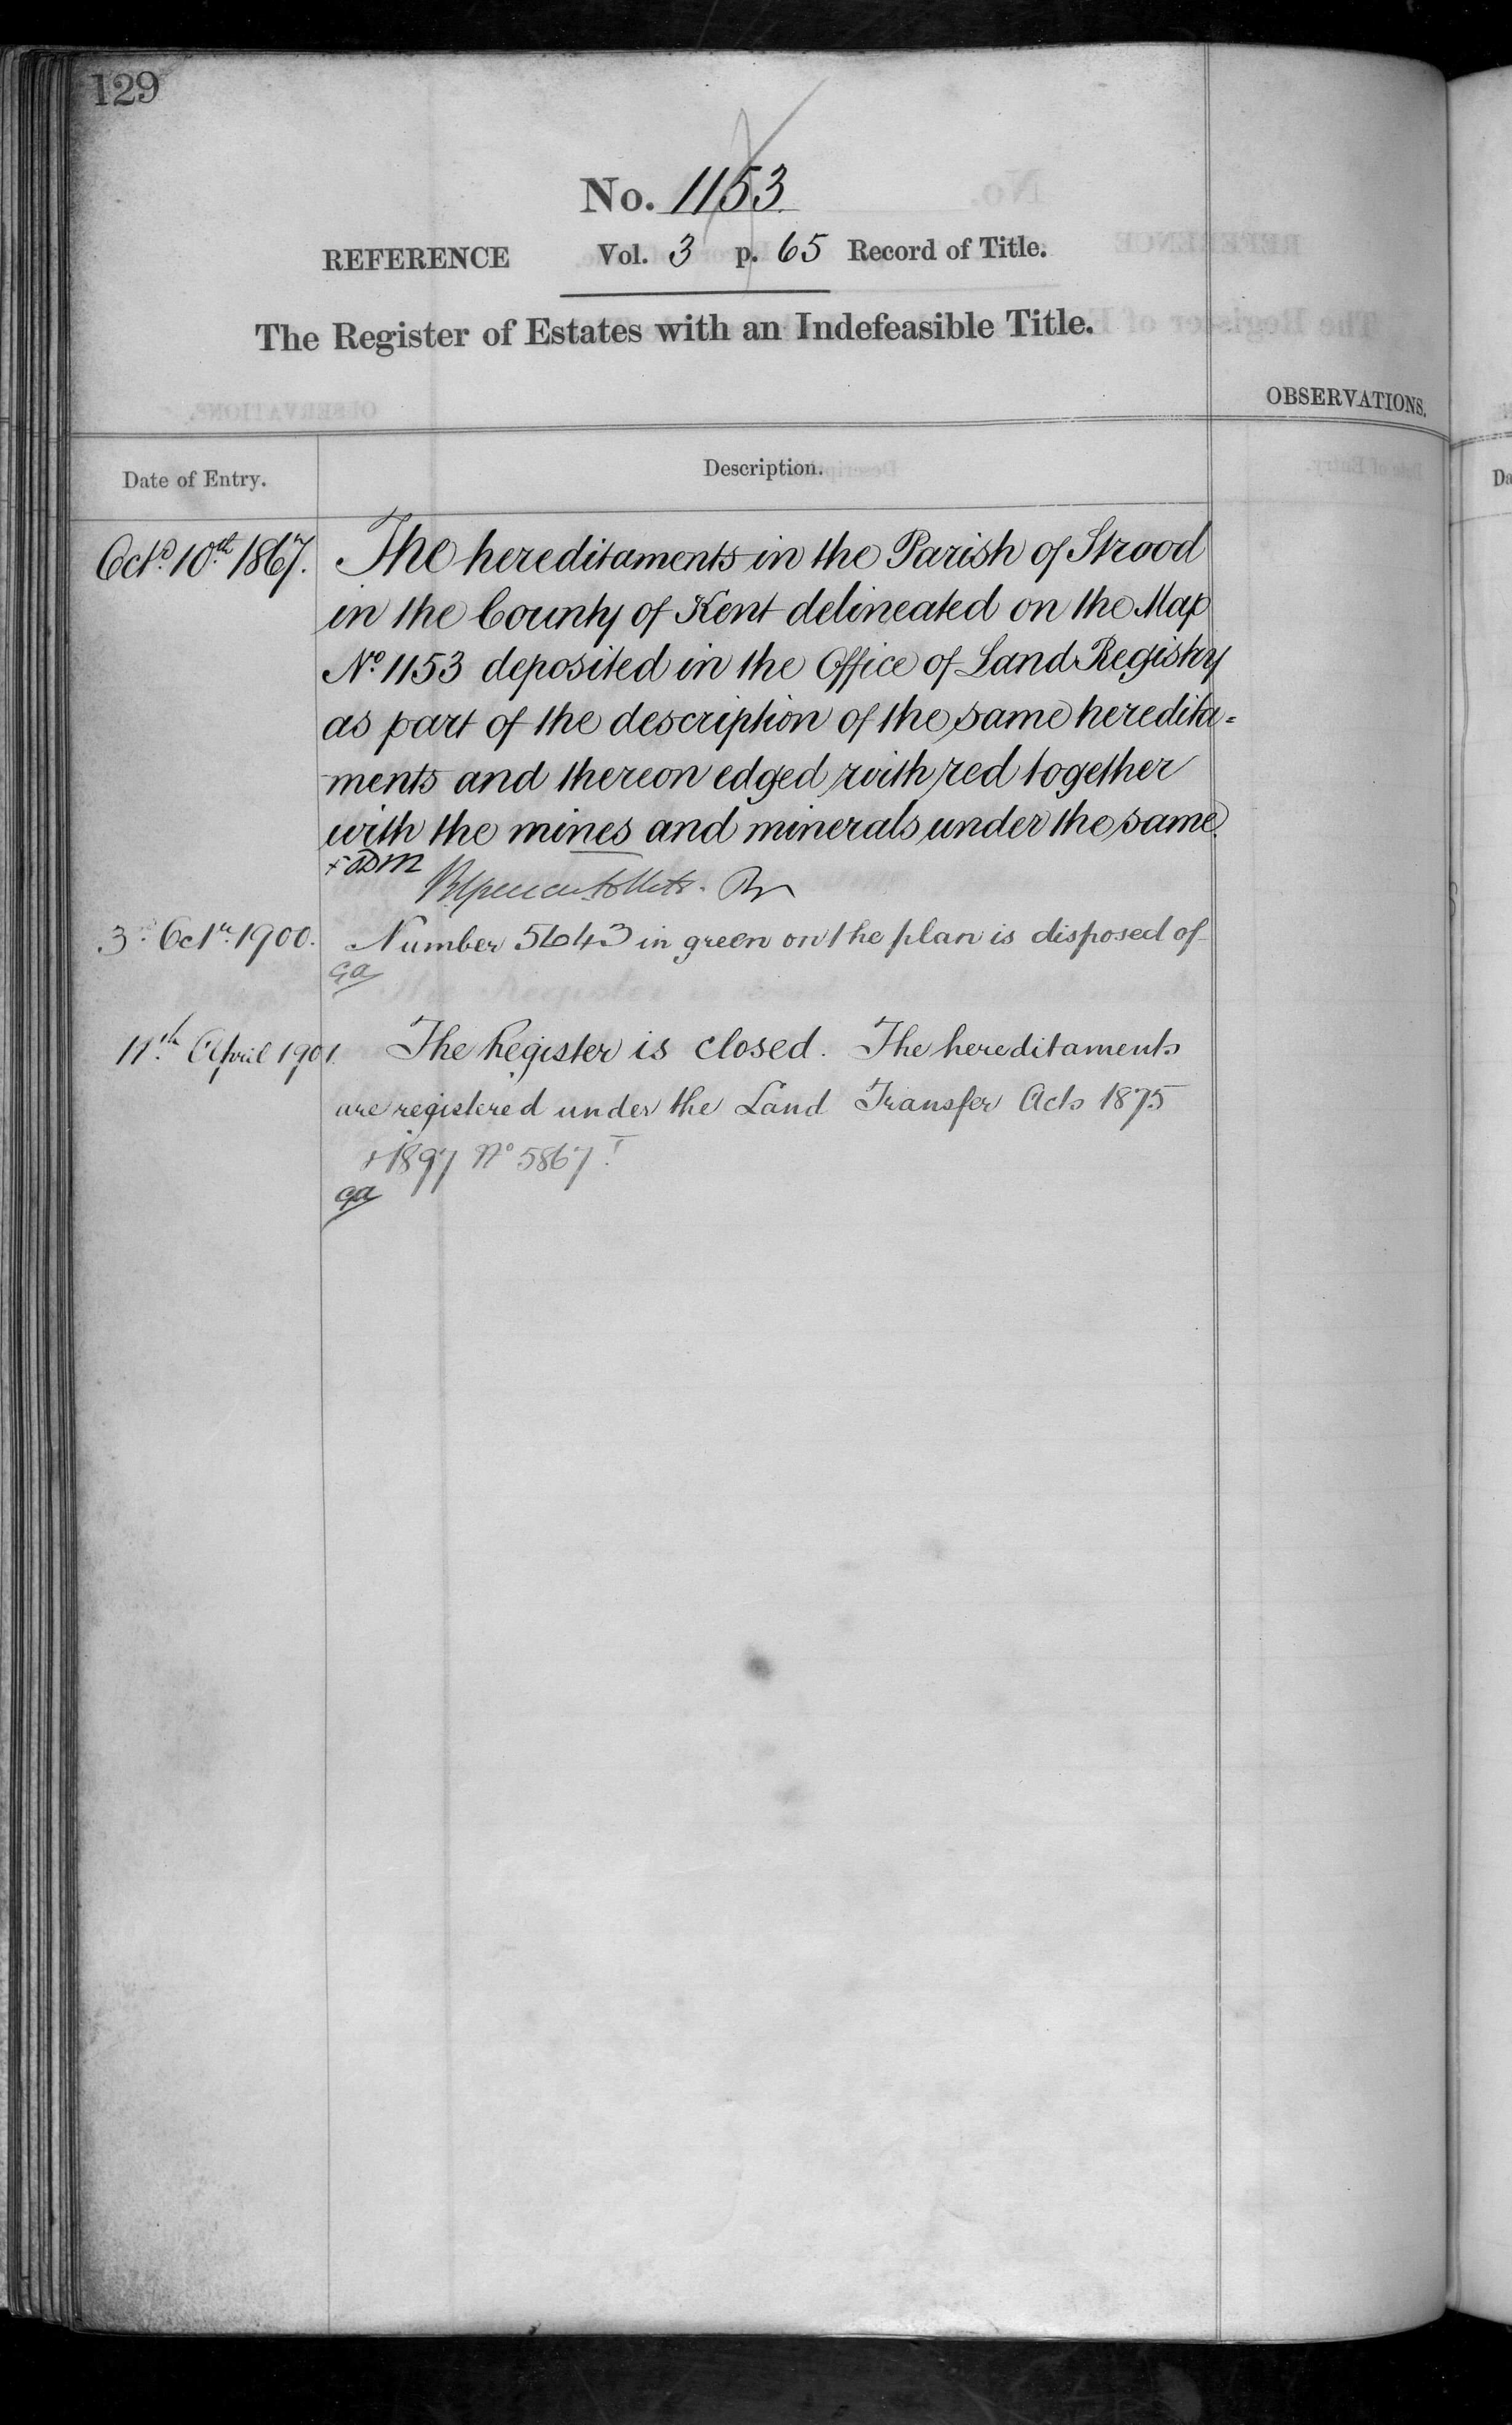 129
No. 1153.
REFERENCE Vol. 3 p. 65 Record of Title.
The Register of Estates with an Indefeasible Title.
OBSERVATIONS.
Date of Entry. Description.
Octr. 10th 1867. The hereditaments in the Parish of Strood
in the County of Kent delineated on the Map
No. 1153 deposited in the Office of Land Registry
as part of the description of the same heredita=
ments and thereon edged with red together
with the mines and minerals under the same.
3rd Octr. 1900. Number 5643 in green on the plan is disposed of
GA
11th April 1901. The Register is closed. The hereditaments
are registered under the Land Transfer Acts 1875
& 1897 No 5867
GA